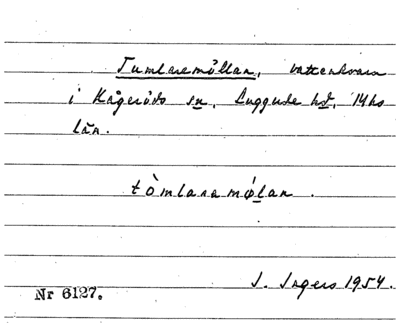 Tumlaremöllan, vattenkvarn
i Kågeröds sn, Luggude hd, Mlhs
län.
tòmlaramø̱lan.
I. Ingers 1954.
Nr 6127.